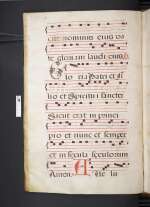 ure nominis eius da
te gloriam laudi eius
Glo ria Patri et fi
lio et Spiritui sancto
Sicut erat in princi
pio et nunc et semper
et in secula seculorum
Amen Alle lu